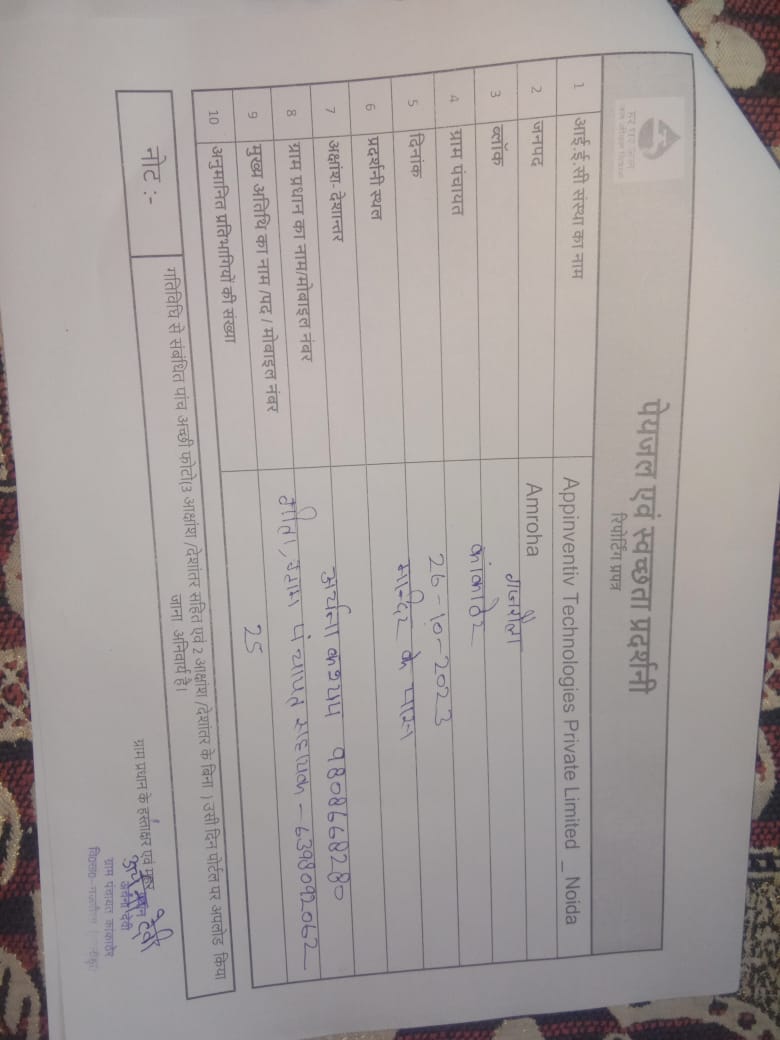 हर घर जल
जल जीवन मिशन
पेयजल एवं स्वच्छता प्रदर्शनी
रिपोर्टिंग प्रपत्र
1 आई.ई.सी संस्था का नाम Appinventiv Technologies Private Limited _ Noida
2 जनपद Amroha
3 ब्लॉक गजरौला
4 ग्राम पंचायत कांकाठेर
5 दिनांक 26-10-2023
6 प्रदर्शनी स्थल मान्दिर के पास
7 अक्षांश- देशान्तर
8 ग्राम प्रधान का नाम/मोबाइल नंबर अर्चना कश्यप 9808668280
9 मुख्य अतिथि का नाम /पद / मोबाइल नंबर पंचायत सहायक - 6398092062
10 अनुमानित प्रतिभागियों की संख्या 25
नोट :-
गतिविधि से संबंधित पांच अच्छी फोटो(3 आक्षांश /देशांतर सहित एवं 2 आक्षांश /देशांतर के बिना ) उसी दिन पोर्टल पर अपलोड किया
जाना अनिवार्य है।
ग्राम प्रधान के हस्ताक्षर एवं मुहर
ग्राम पंचायत कांकाठेर